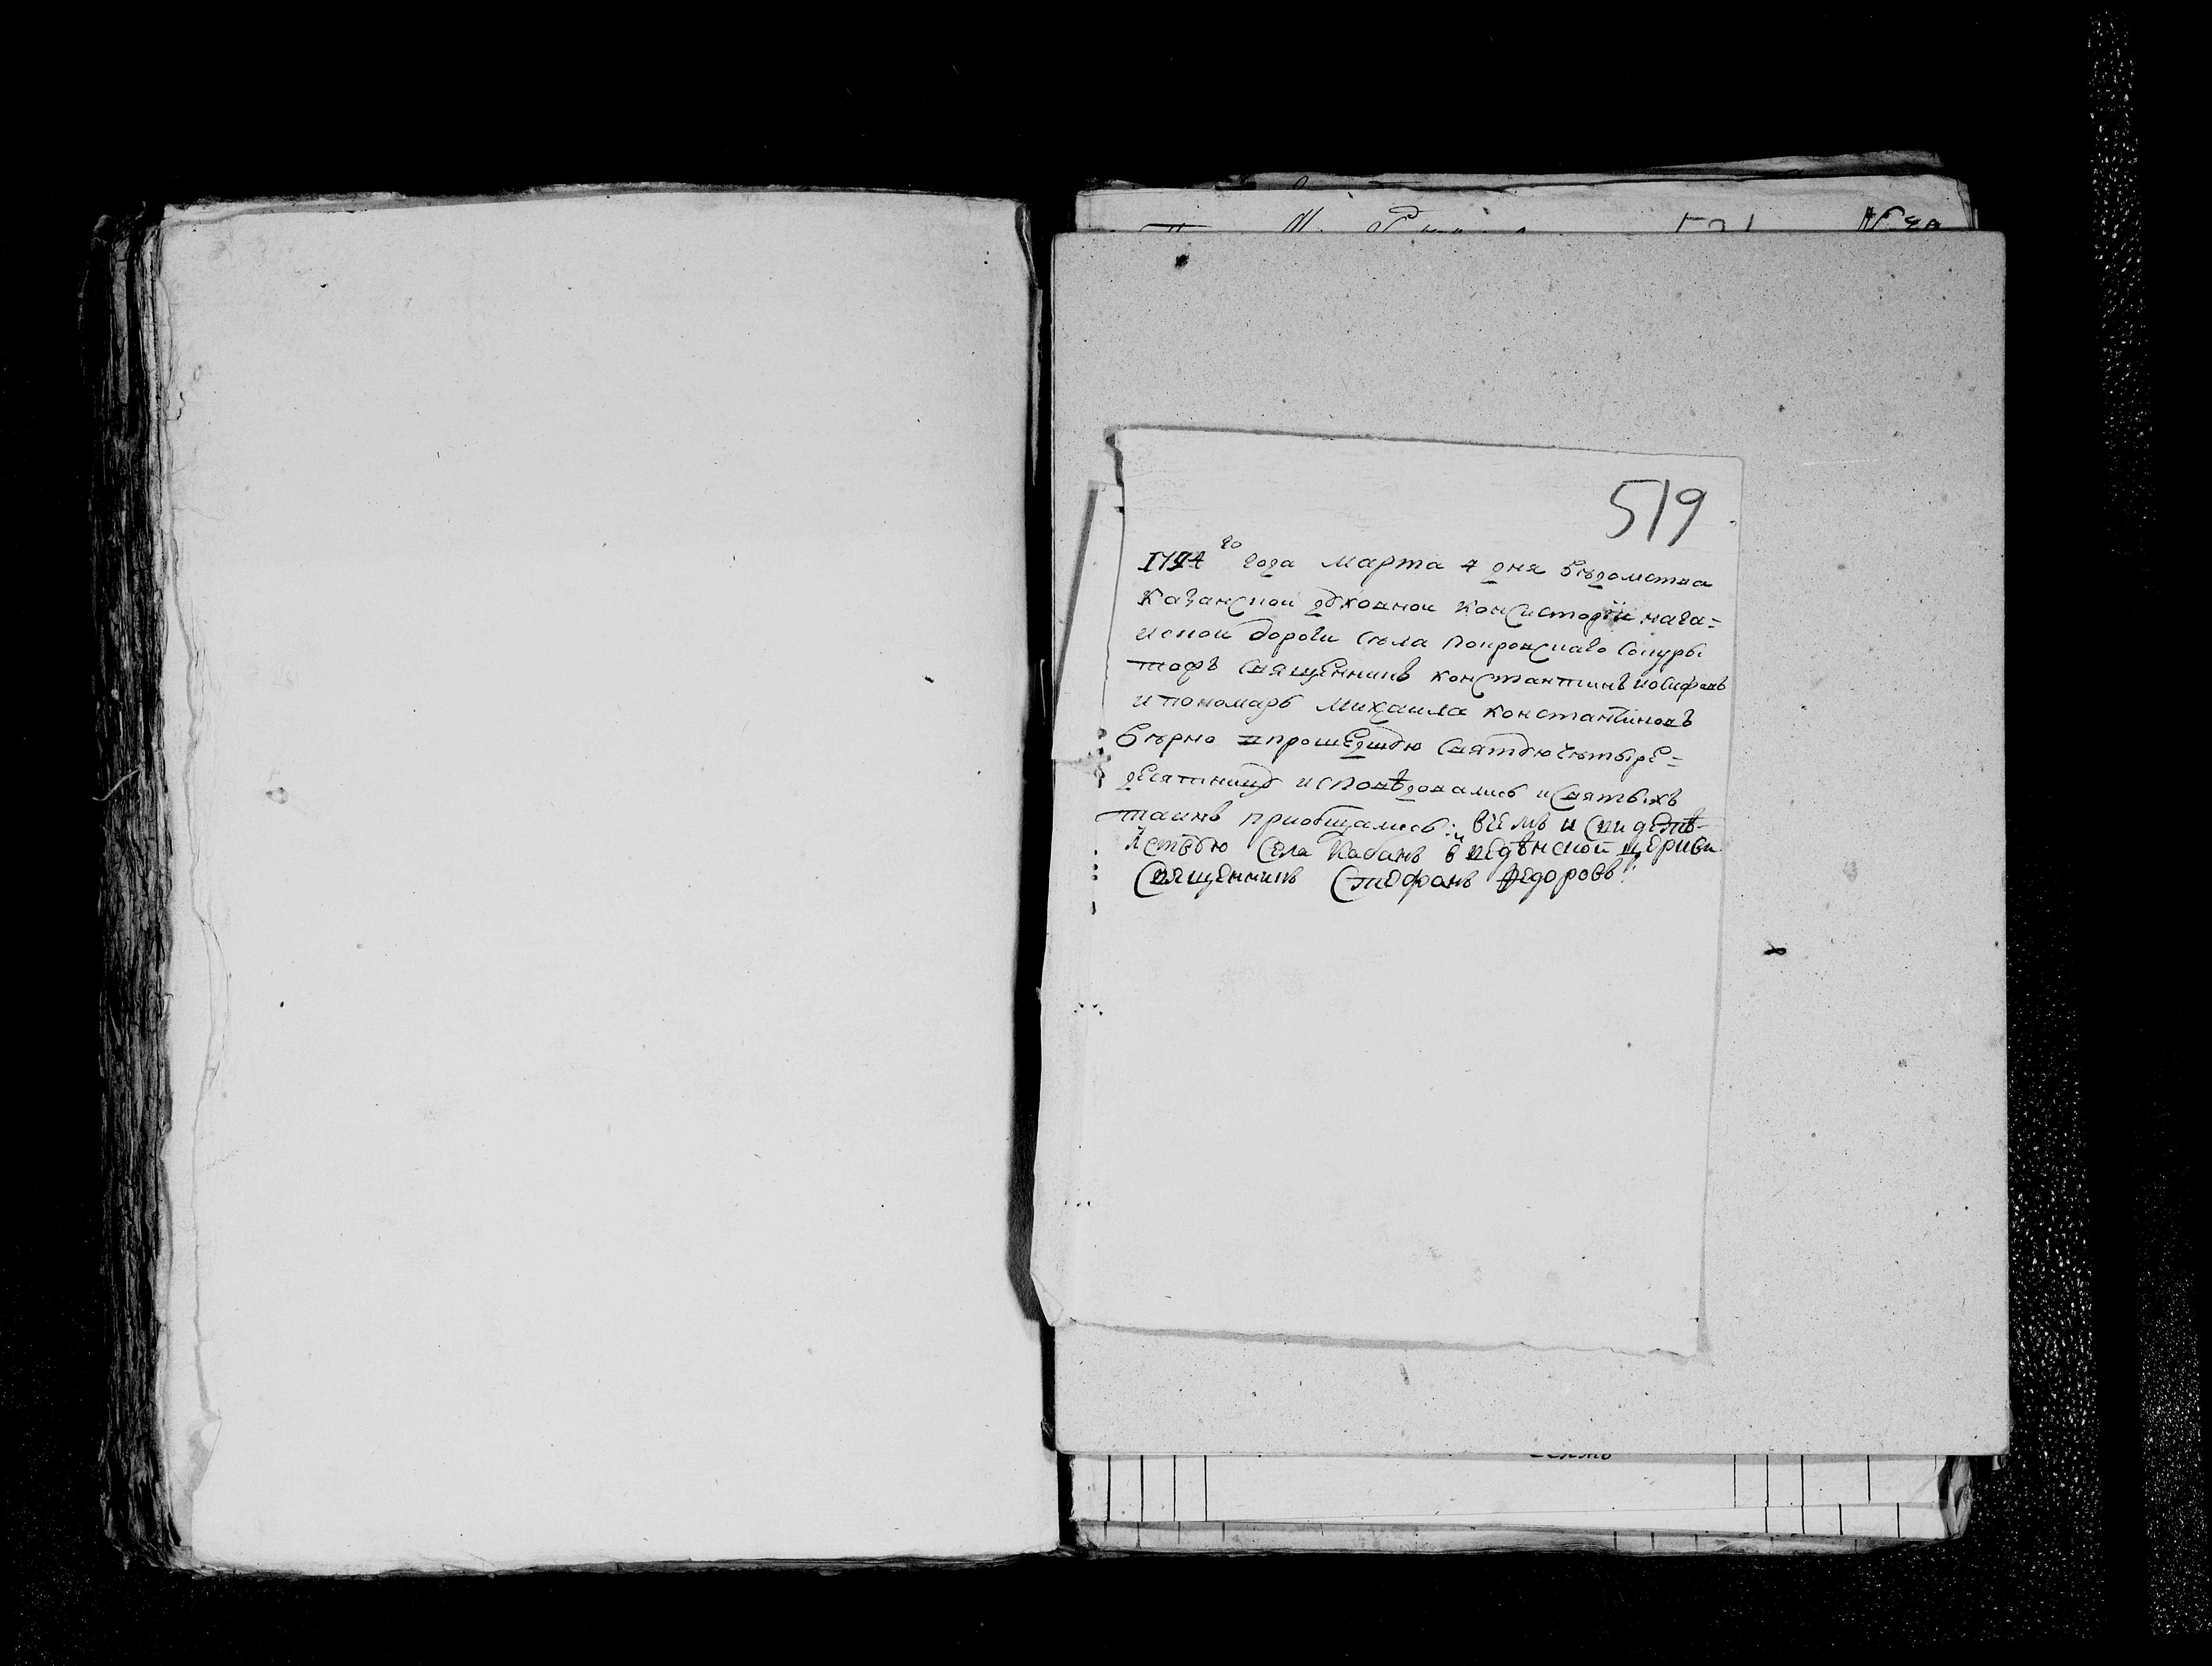 519
1794 го года марта 4 дня Ведомства
Казанской духовной Консисторїи нага=
иской дороги села покровскаго
священникъ константинъ иосифовъ
и пономарь михаила константиновъ
Верно впрошедшую святую четыре=
десятницу исповѣдовались исвятыхъ
таинъ приобщались: Всемъ и свидетѣ-
лствую Села Кабанъ церкви
Священникъ Стефанъ Федоровъ